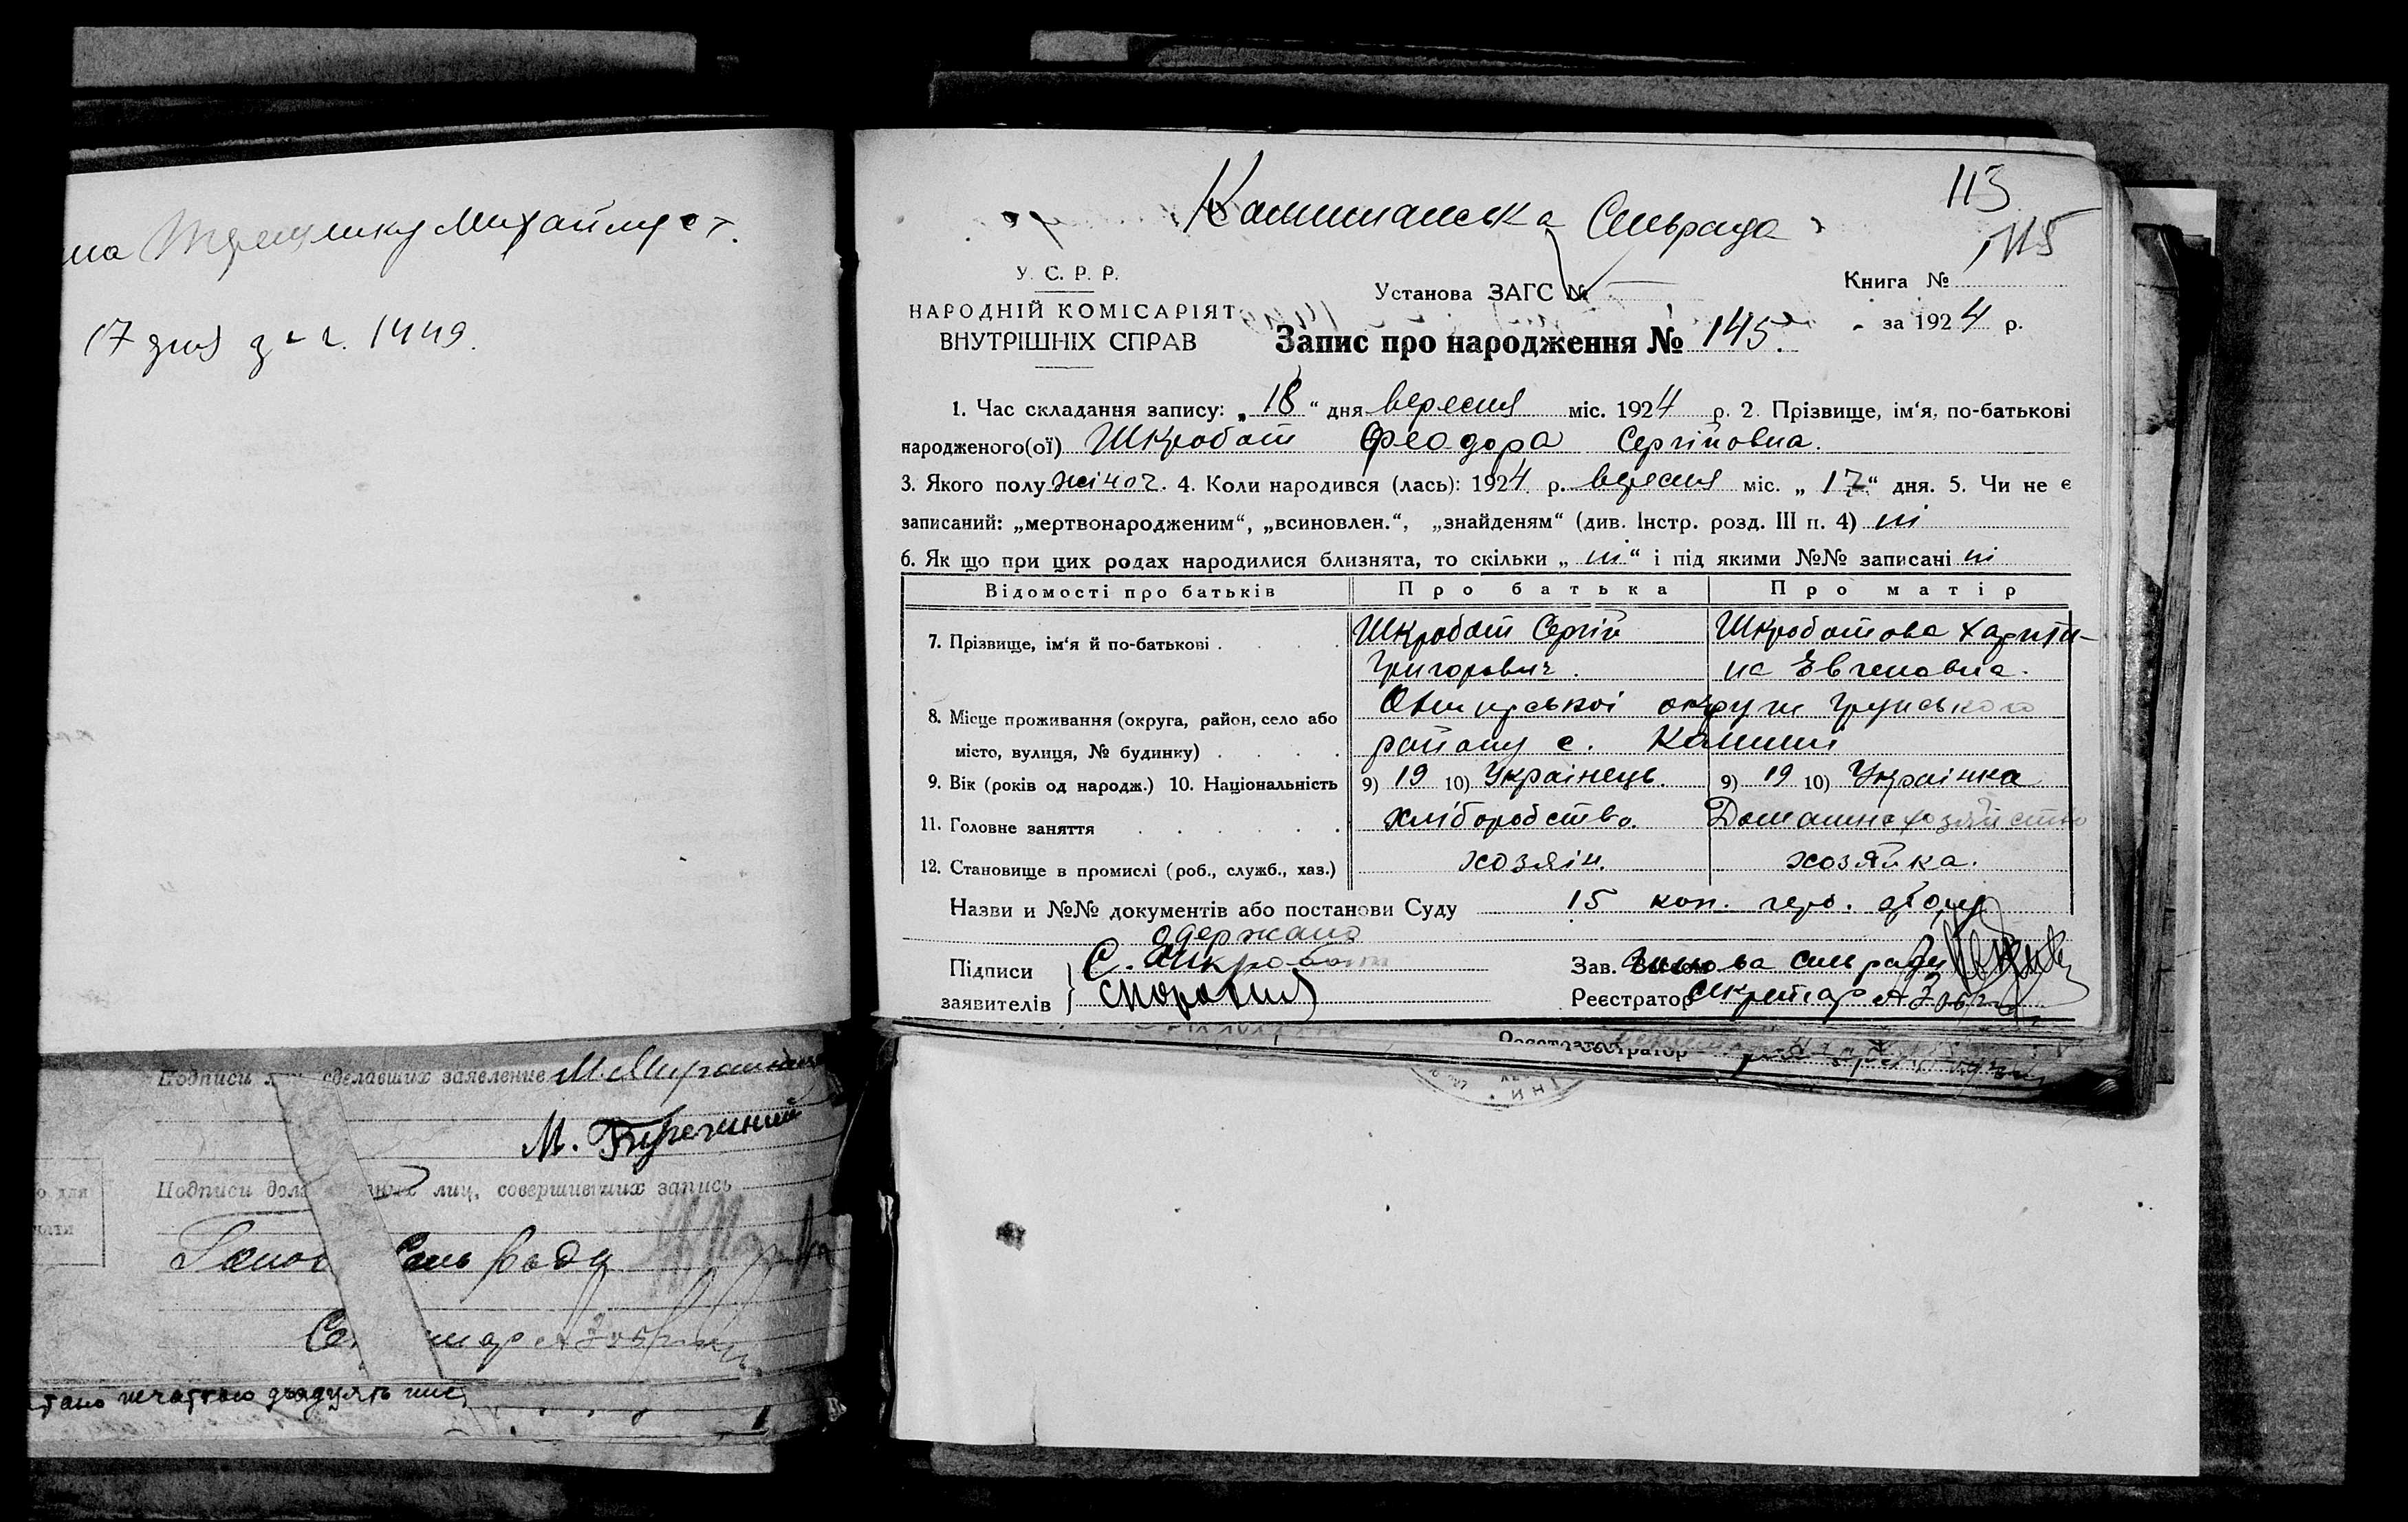 Михайлу
1449.
Подписи сделавших заявление
М.
Подписи лиц, совершивших запись
Сель Рады
печаткою
Сельрада
113
115
У. С. Р. Р.
НАРОДНІЙ КОМІСАРІЯТ
ВНУТРІШНІХ СПРАВ
Установа ЗАГС №
Книга №
за 1924 р.
Запис про народження № 145
1. Час складання запису: „18“ дня вересня міс. 1924 р. 2. Прізвище, ім‘я, по-батькові
народженого(ої) Шкробот Феодора Сергійовна.
3. Якого полу жіноч. 4. Коли народився (лась): 1924 р. вересня міс. „17“ дня. 5. Чи не є
записаний: „мертвонародженим“, „всиновлен.“, „знайденям“ (див. Інстр. розд. III п. 4) ні
6. Як що при цих родах народилися близнята, то скільки „ні“ і під якими №№ записані ні
Відомості про батьків Про батька Про матір
7. Прізвище, ім‘я й по-батькові . . . . Шкробот Сергій Григорович. Шкроботова Харити-
на Евгеновна.
8. Місце проживання (округа, район, село або округи Грунського
місто, вулиця, № будинку) . . . . району с. Камиші
9. Вік (років од народж.) 10. Національність 9) 19 10) Українець. 9) 19 10) Українка
11. Головне заняття . . . . . . хліборобство. Домашнє хозяйство
12. Становище в промислі (роб., служб., хаз.) хозяін. хозяйка.
Назви и №№ документів або постанови Суду 15 коп. гер. збору
одержано
Підписи
заявителів
С. Шкробот
Зав. Голова сільради
Реєстратор Секретар